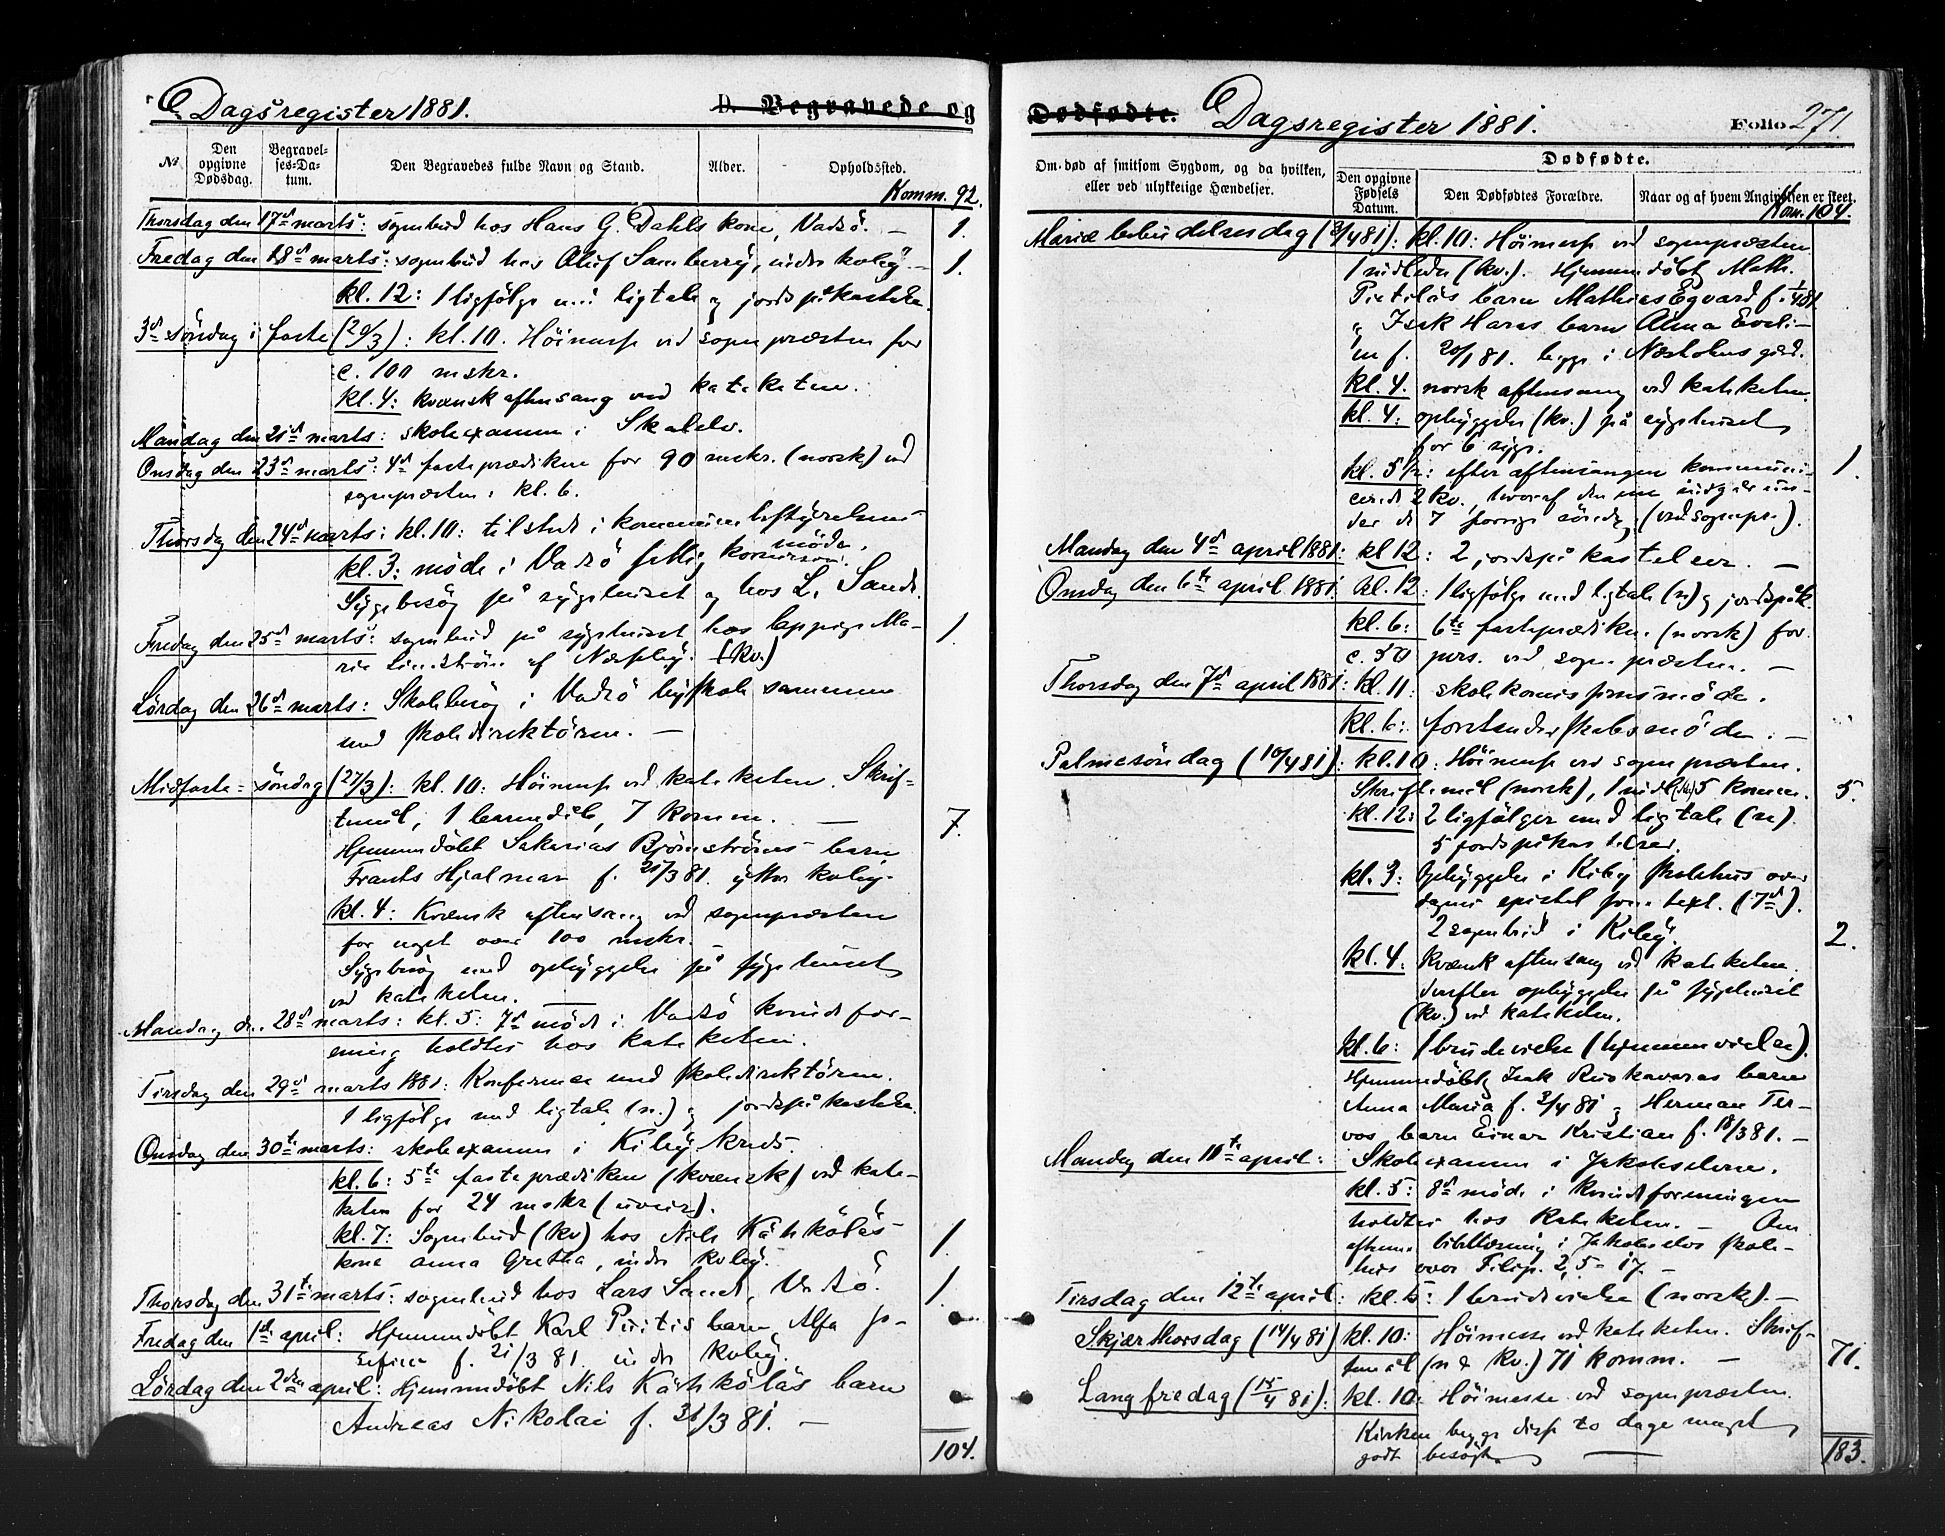 Dagsregister 1881.
D. Begravede og
No.
Den opgivne Dødsdag.
Begravelses-Datum.
Den Begravedes fulde Navn og Stand.
Alder.
Opholdssted.
Komm. 92.
Thorsdag den 17d marts: sognebud hos Hans G. Dahls kone, Vadsö. — 1.
Fredag den 18d marts: sognebud hos Oluf Samberry, indre kvby — 1.
kl. 12: 1 ligfölge med ligtale og jordspåkastelse.
3d söndag i faste (20/3): kl. 10. Höimesse ved sognepræsten for
c. 100 mskr.
kl. 4: kvænsk aftensang ved kateketen.
Mandag den 21d marts: skoleexamen i Skalelv.
Onsdag den 23d marts: 4d fasteprædiken for 90 mskr. (norsk) ved
sognepræsten. kl. 6.
Thorsdag den 24d marts: kl. 10: tilstede i kommunebestyrelses-
möde.
kl. 3: möde i Vadsö fattigkomission.
Sygebesög på sygehuset og hos L. Sand.
Fredag den 25d marts: sognebud på sygehuset hos lappige Ma- 1.
rie Lindström af Næsseby. (kv.)
Lördag den 26d marts: Skolebesög i Vadsö byskole sammen
med skoledirektören. —
Midfaste-söndag (27/3): kl. 10: Höimesse ved kateketen. Skrif-
temål, 1 barnedåb, 7 komm. — 7.
Hjemmedöbt Sakarias Björnströms barn
Frants Hjalmar f. 21/3 81. ytter kvby.
kl. 4: Kvænsk aftensang ved sognepræsten
for noget over 100 mskr. —
Sygebesög med opbyggelse på sygehuset
ved kateketen. —
Mandag den 28d marts: kl. 5: 7d möde i Vadsö kvindefor-
ening holdtes hos kateketen.
Tirsdag den 29d marts 1881: Konference med skoledirektören.
1 ligfölge med ligtale (n.) og jordspåkastelse.
Onsdag den 30te marts: skoleexamen i Kiby kreds.
kl. 6: 5te fasteprædiken (kvænsk) ved kate-
keten for 24 mskr (uveir).
kl. 7: Sognebud (kv) hos Nils Kähkölas 1.
kone Anna Gretha, indre kvby.
Thorsdag den 31te marts: sognebud hos Lars Sand, Vadsö. 1.
Fredag den 1ste april: Hjemmedöbt Karl Piritis barn Alfa Jo-
sefine f. 21/3 81. indre kvby.
Lördag den 2den april: Hjemmedöbt Nils Kähkölas barn
Andreas Nikolai f. 31/3 81. —
104.
Dødfødte.
Dagsregister 1881.
Folio 271.
Om død af smitsom Sygdom, og da hvilken, eller ved ulykkelige Hændelser.
Dødfødte.
Den opgivne Fødsels Datum.
Den Dødfødtes Forældre.
Naar og af hvem Angivelsen er skeet.
Kom. 104.
Mariæ bebudelsesdag (3/4 81): kl. 10: Höimesse ved sognepræsten
1 indledn (kv.). Hjemmedöbt Math.
Pietiläs barn Mathias Edvard f. 1/4 81
og Isak Haras barn Alma Eveli-
ne f. 20/1 81. begge i Næstebusgård.
kl. 4. norsk aftensang ved kateketen.
kl. 4: opbyggelse (kv.) på sygehuset
for 6 syge.
kl. 5½: efter aftensangen kommuni- 1.
cerede 2 kv., hvoraf den ene indgår un-
der de 7 forrige söndag (ved sognepr.).
Mandag den 4d april 1881: kl 12: 2 jordspåkastelser. —
Onsdag den 6te april 1881 kl. 12: 1 ligfölge med ligtale (n) og jordspåk
kl. 6: 6te fasteprædiken (norsk) for
c. 50 pers. ved sognepræsten. —
Thorsdag den 7d april 1881: kl. 11: skolekomissionsmöde.
kl. 6: forstanderskabsmöde. —
Palmesöndag (10/4 81): kl. 10: Höimesse ved sognepræsten.
Skriftemål (norsk), 1 indl. (n) 5 komm. 5.
kl. 12: 2 ligfölger med ligtale (n).
5 jordspåkastelser.
kl. 3: Opbyggelse i Kiby skolehus over
dagens epistel som text. (7d).
2 sognebud i Kiby. 2.
kl. 4. Kvænsk aftensang ved kateketen.
derefter opbyggelse på sygehuset
(kv.) ved kateketen.
kl. 6: 1 brudevielse (hjemmevielse).
Hjemmedöbt Isak Ruokavaras barn
Anna Maria f. 3/4 81 og Herman Ter-
vos barn Einar Kristian f. 18/3 81. —
Mandag den 11te april: Skoleexamen i Jakobselven.
kl. 5: 8d möde i kvindeforeningen
holdtes hos kateketen. — Om
aftenen bibellæsning i Jakobselvs skole-
hus over Filip. 2, 5-17. —
Tirsdag den 12te april: kl. 5: 1 brudevielse (norsk). —
Skjærthorsdag (14/4 81) kl. 10: Höimesse ved kateketen. Skrif-
temål (n & kv.) 71 komm. — 71.
Langfredag (15/4 81): kl. 10: Höimesse ved sognepræsten.
Kirken begge disse to dage meget
godt besögt. —
183.